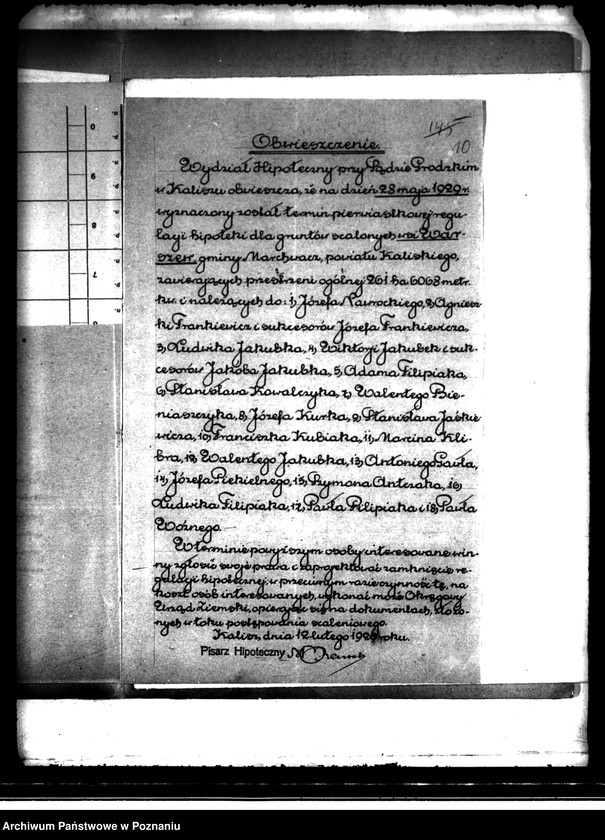 145
10
Obwieszczenie.
Wydział Hipoteczny przy Sądzie Grodzkim
w Kaliszu obwieszcza, że na dzień 28 maja 1929 r.
wyznaczony został termin pierwiastkowej regu-
lacji hipoteki dla gruntów scalonych wsi War-
szew, gminy Marchwacz, powiatu Kaliskiego,
zawierających przestrzeni ogólnej 261 ha 6068 metr.
kw. i należących do: 1, Józefa Nawrockiego, 2, Agniesz-
ki Frankiewicz i sukcesorów Józefa Frankiewicza,
3, Ludwika Jakubka, 4, Wiktorji Jakubek i suk-
cesorów Jakóba Jakubka, 5, Adama Filipiaka,
6, Stanisława Kowalczyka, 7, Walentego Bie-
niaszczyka, 8, Józefa Kurka, 9, Stanisława Jaśkie-
wicza, 10, Franciszka Kubiaka, 11, Marcina Kli-
bra, 12, Walentego Jakubka, 13, Antoniego Gawła,
14, Józefa Piekielnego, 15, Szymona Antczaka, 16,
Ludwika Filipiaka, 17, Pawła Pilipiaka i 18, Pawła
Woźnego.
W terminie powyższym osoby interesowane win-
ny zgłosić swoje prawa i zaprojektować zamknięcie re-
gulacji hipotecznej, w przeciwnym razie czynność tę, na
koszt osób interesowanych, wykonać może Okręgowy
Urząd Ziemski, opierając się na dokumentach, złożo-
nych w toku postępowania scaleniowego.
Kalisz, dnia 12 lutego 1929 roku.
Pisarz Hipoteczny
0
9
8
7
Archiwum Państwowe w Poznaniu